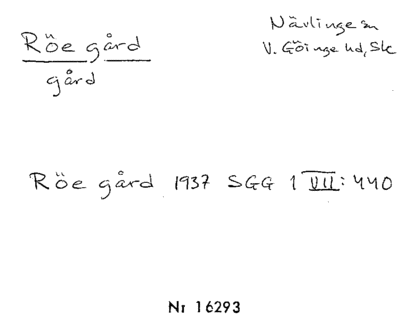 Röe gård
gård
Nävlinge sn
V. Göinge hd, Sk
Röe gård 1937 SGG 1 VII: 440
Nr 16293